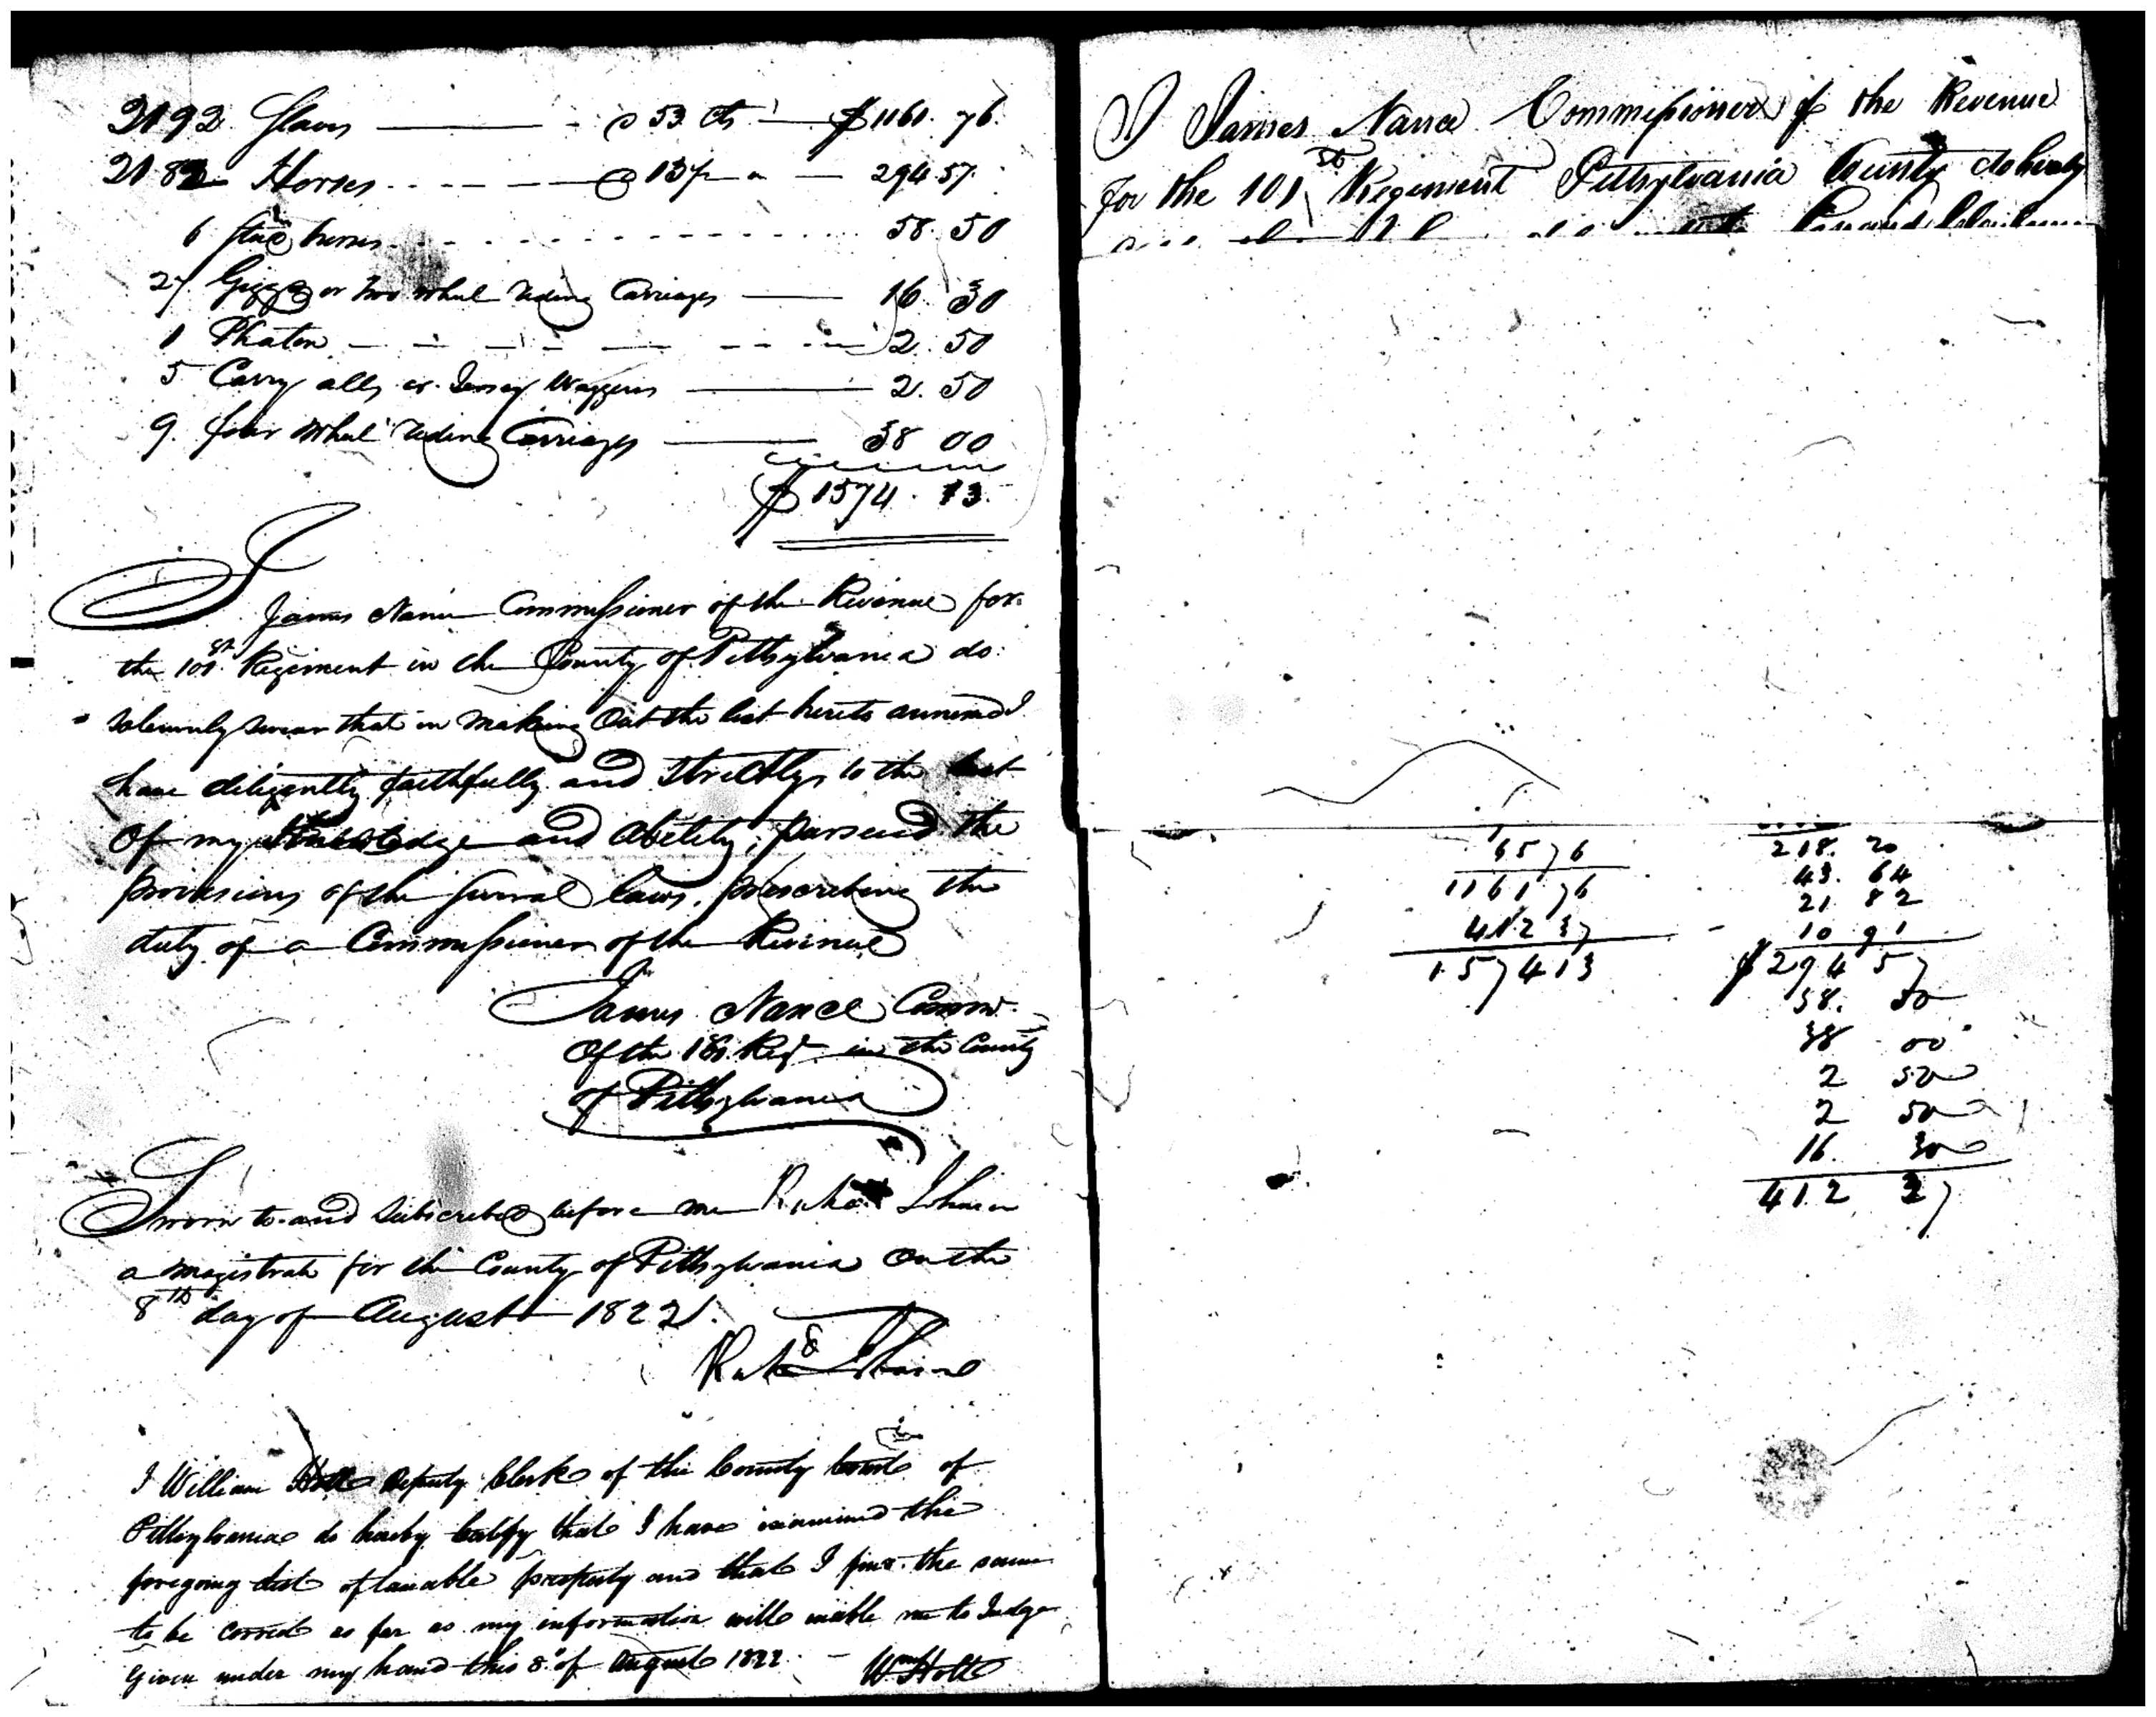 2192 Slaves — @ 53 cts — $1161.76
2182 Horses — @ 13½ " — 294.57
6 Stud horses 58.50
27 Giggs or two wheel Riding Carriages — 16.30
1 Phaton — 2.50
5 Carry alls or Jersey Waggons — 2.50
9. four wheel Riding Carriages — 38 00
$1574.13.
I James Nance Commissioner of the Revenue for
the 101st Regiment in the County of Pittsylvania do
solemnly swear that in making Out the list hereto annexed I
have diligently faithfully and Strictly, to the best
Of my Knowledge and Ability, pursued the
provisions of the several laws, prescribing the
duty of a Commissioner of the Revenue
James Nance Comr.
Of the 101 Regt in the County
of Pittsylvania
Sworn to and Subscribed before me Richd Johnson
a magistrate for the County of Pittsylvania On the
8th day of August 1822.
Richd Johnson
I William Holt Deputy Clerk of the County Court of
Pittsylvania do hereby Certify that I have examined the
foregoing List of taxable property and that I find the same
to be correct as far as my information will enable me to Judge
Given under my hand this 8th of August 1822 — Wm Holt
I James Nance Commissioner of the Revenue
for the 101st Regiment Pittsylvania County do hereby
6576
1161 76
412 37
1574 13
218. 20
43. 64
21 82
10 91
$294 57
58. 50
38 00
2 50
2 50
16. 30
412 37